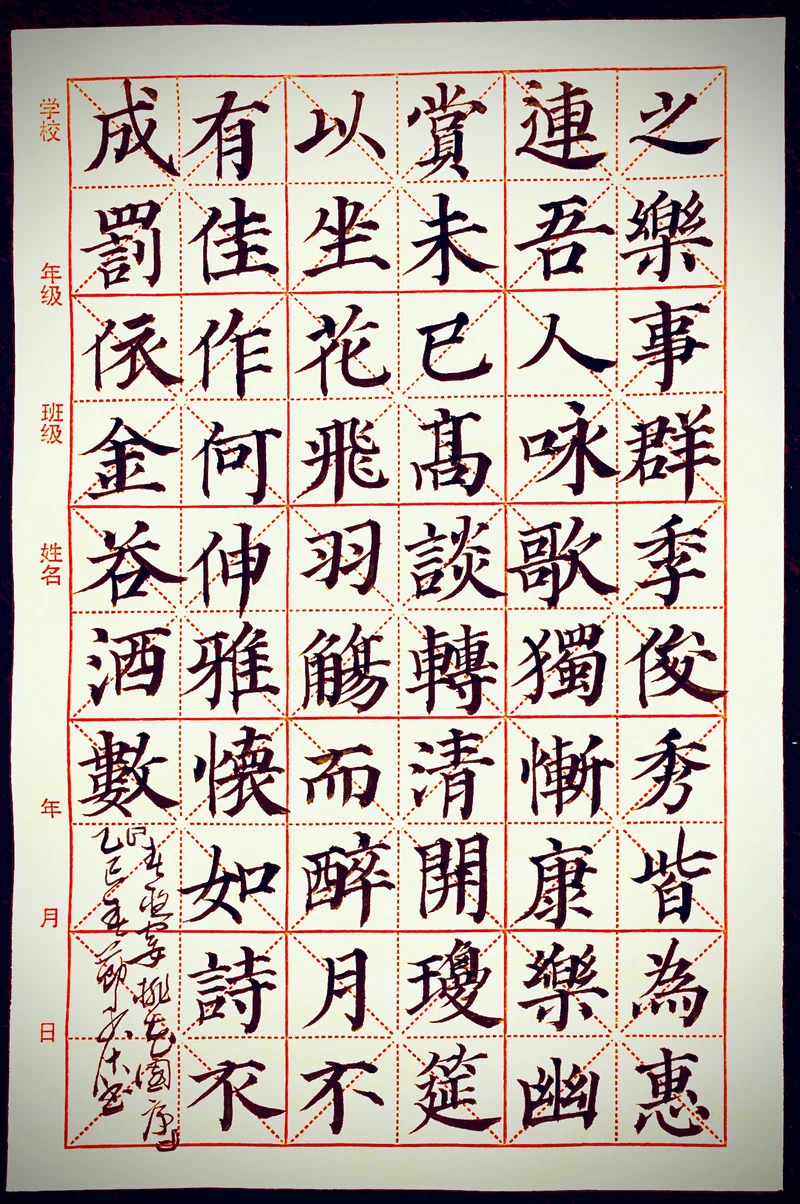 之樂事群季俊秀皆為惠
連吾人咏歌獨慚康樂幽
賞未已髙談轉清開瓊筵
以坐花飛羽觴而醉月不
有佳作何伸雅懷如詩不
成罰依金谷酒數
春夜宴桃花園序
乙巳春
学校 年级 班级 姓名 年 月 日